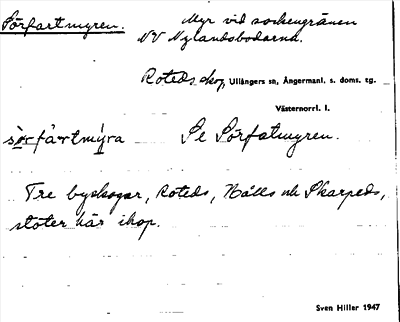 Sörfartmyren.
Myr vid sockengränsen
NV Nylandsbodarna.
Roteds skog, Ullångers sn, Ångermanl. s. doms. tg.
Västernorrl. l.
sör fårtmýra Se Sörfatmyren.
Tre byskogar, Roteds, Mälls och Skarpeds,
stöter här ihop.
Sven Hiller 1947